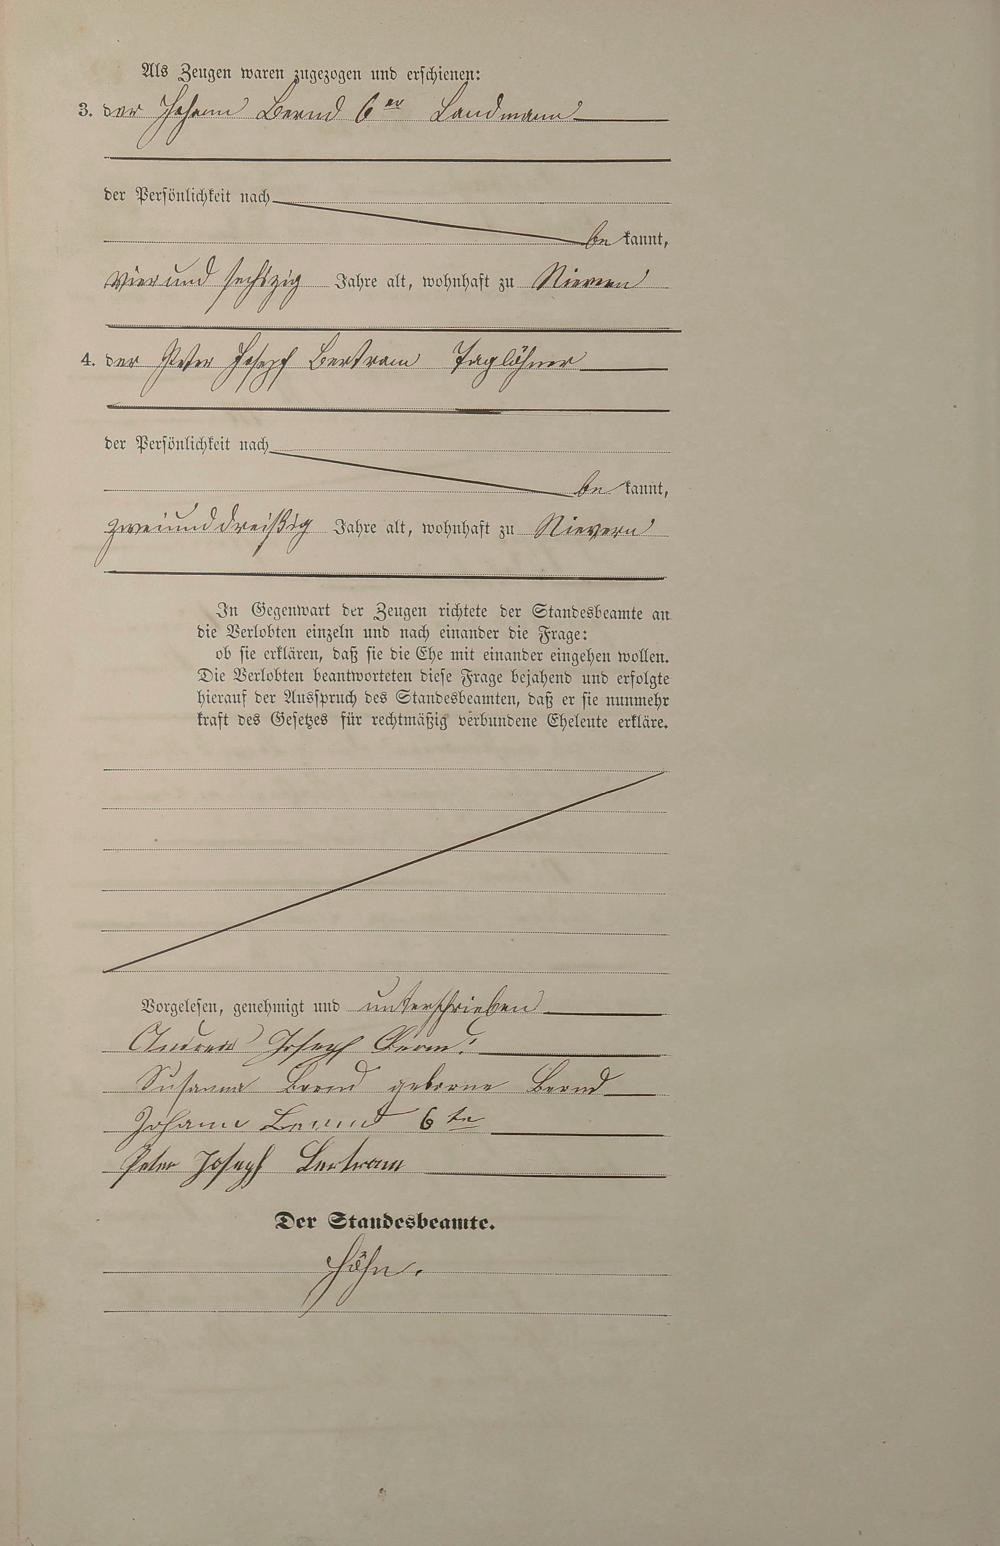 Als Zeugen waren zugezogen und erschienen:
3. der Johann Bernd 6er Landmann
der Persönlichkeit nach
bekannt,
vierund sechszig Jahre alt, wohnhaft zu Nievern
4. der Peter Joseph Bertram Taglöhner
der Persönlichkeit nach
bekannt,
zweiunddreißig Jahre alt, wohnhaft zu Nievern
In Gegenwart der Zeugen richtete der Standesbeamte an
die Verlobten einzeln und nach einander die Frage:
ob sie erklären, daß sie die Ehe mit einander eingehen wollen.
Die Verlobten beantworteten diese Frage bejahend und erfolgte
hierauf der Ausspruch des Standesbeamten, daß er sie nunmehr
kraft des Gesetzes für rechtmäßig verbundene Eheleute erkläre.
Vorgelesen, genehmigt und unterschrieben
Joseph
Susanna Bernd geborne Bernd
Johann Bernd 6te
Peter Joseph Bertram
Der Standesbeamte.
Höhn.